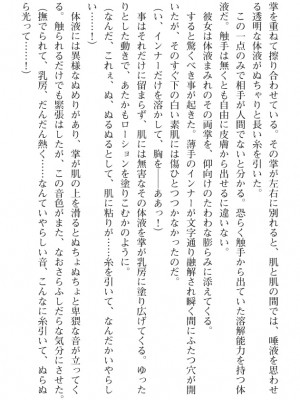 掌を重ねて擦り合わせている。その掌が左右に別れると、肌と肌の間では、唾液を思わせ
る透明な体液がぬちゃりと長い糸を引いた。
　この一点のみで相手が人間でないと分かる。恐らく触手から出ていた溶解能力を持つ体
液だ。触手は無くとも自由に皮膚から出せるに違いない。
　彼女は体液にまみれたその両掌を、仰向けのたわわな膨らみに添えてくる。
　すると驚くべき事が起きた。薄手のインナーが文字通り融解され瞬く間にふたつ穴が開
いたが、そのすぐ下の白い素肌には傷ひとつつかなかったのだ。
（い、インナーだけを溶かして、胸を……ああっ！）
　事はそれだけに留まらず、肌には無害なその体液を掌が乳房に塗り広げてくる。ゆった
りとした動きで、あたかもローションを塗りこむかのように。
（やだ、これぇ、ぬ、ぬるぬるとして、肌に粘りが……糸を引いて、なんだかいやらし
い……っ）
　体液には異様なぬめりがあり、掌が肌の上を滑るとぬちょぬちょと卑猥な音が立ってく
る。触られるだけでも緊張はしたが、この音色がまた、なおさらふしだらな気分にさせた。
（撫でられて、乳房、だんだん熱く……なんていやらしい音、こんなに糸引いて、ぬらぬ
ら光って……！）